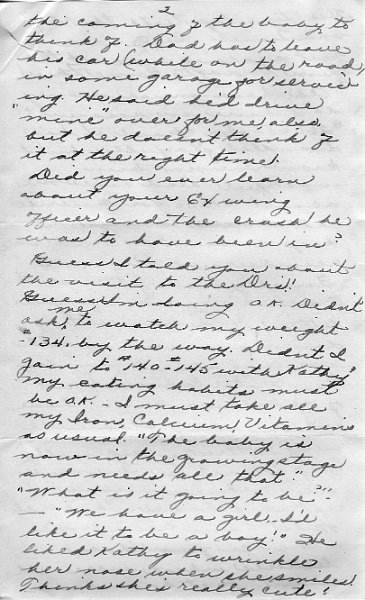 2
the coming of the baby to
think of. Dad has to leave
his car (while on the road)
in some garage for servic-
ing. He said he'd drive
"mine" over for me, also,
but he doesn't think of
it at the right time!
Did you ever learn
about your Ex wing
officer and the crash he
was to have been in?
Guess I told you about
the visit to the Drs!
Guess I'm doing O.K. Didn't
ask me to watch my weight
- 134. by the way. Didn't I
gain to #140 - #145 with Kathy?
My eating habits must
be O.K. - I must take all
my Iron, Calcium, Vitamins
as usual. "The baby is
now in the growing stage
and needs all that"
"What is it going to be?" -
- "We have a girl - I'd
like it to be a boy!" He
liked Kathy to wrinkle
her nose when she smiles!
Thinks she's really cute!